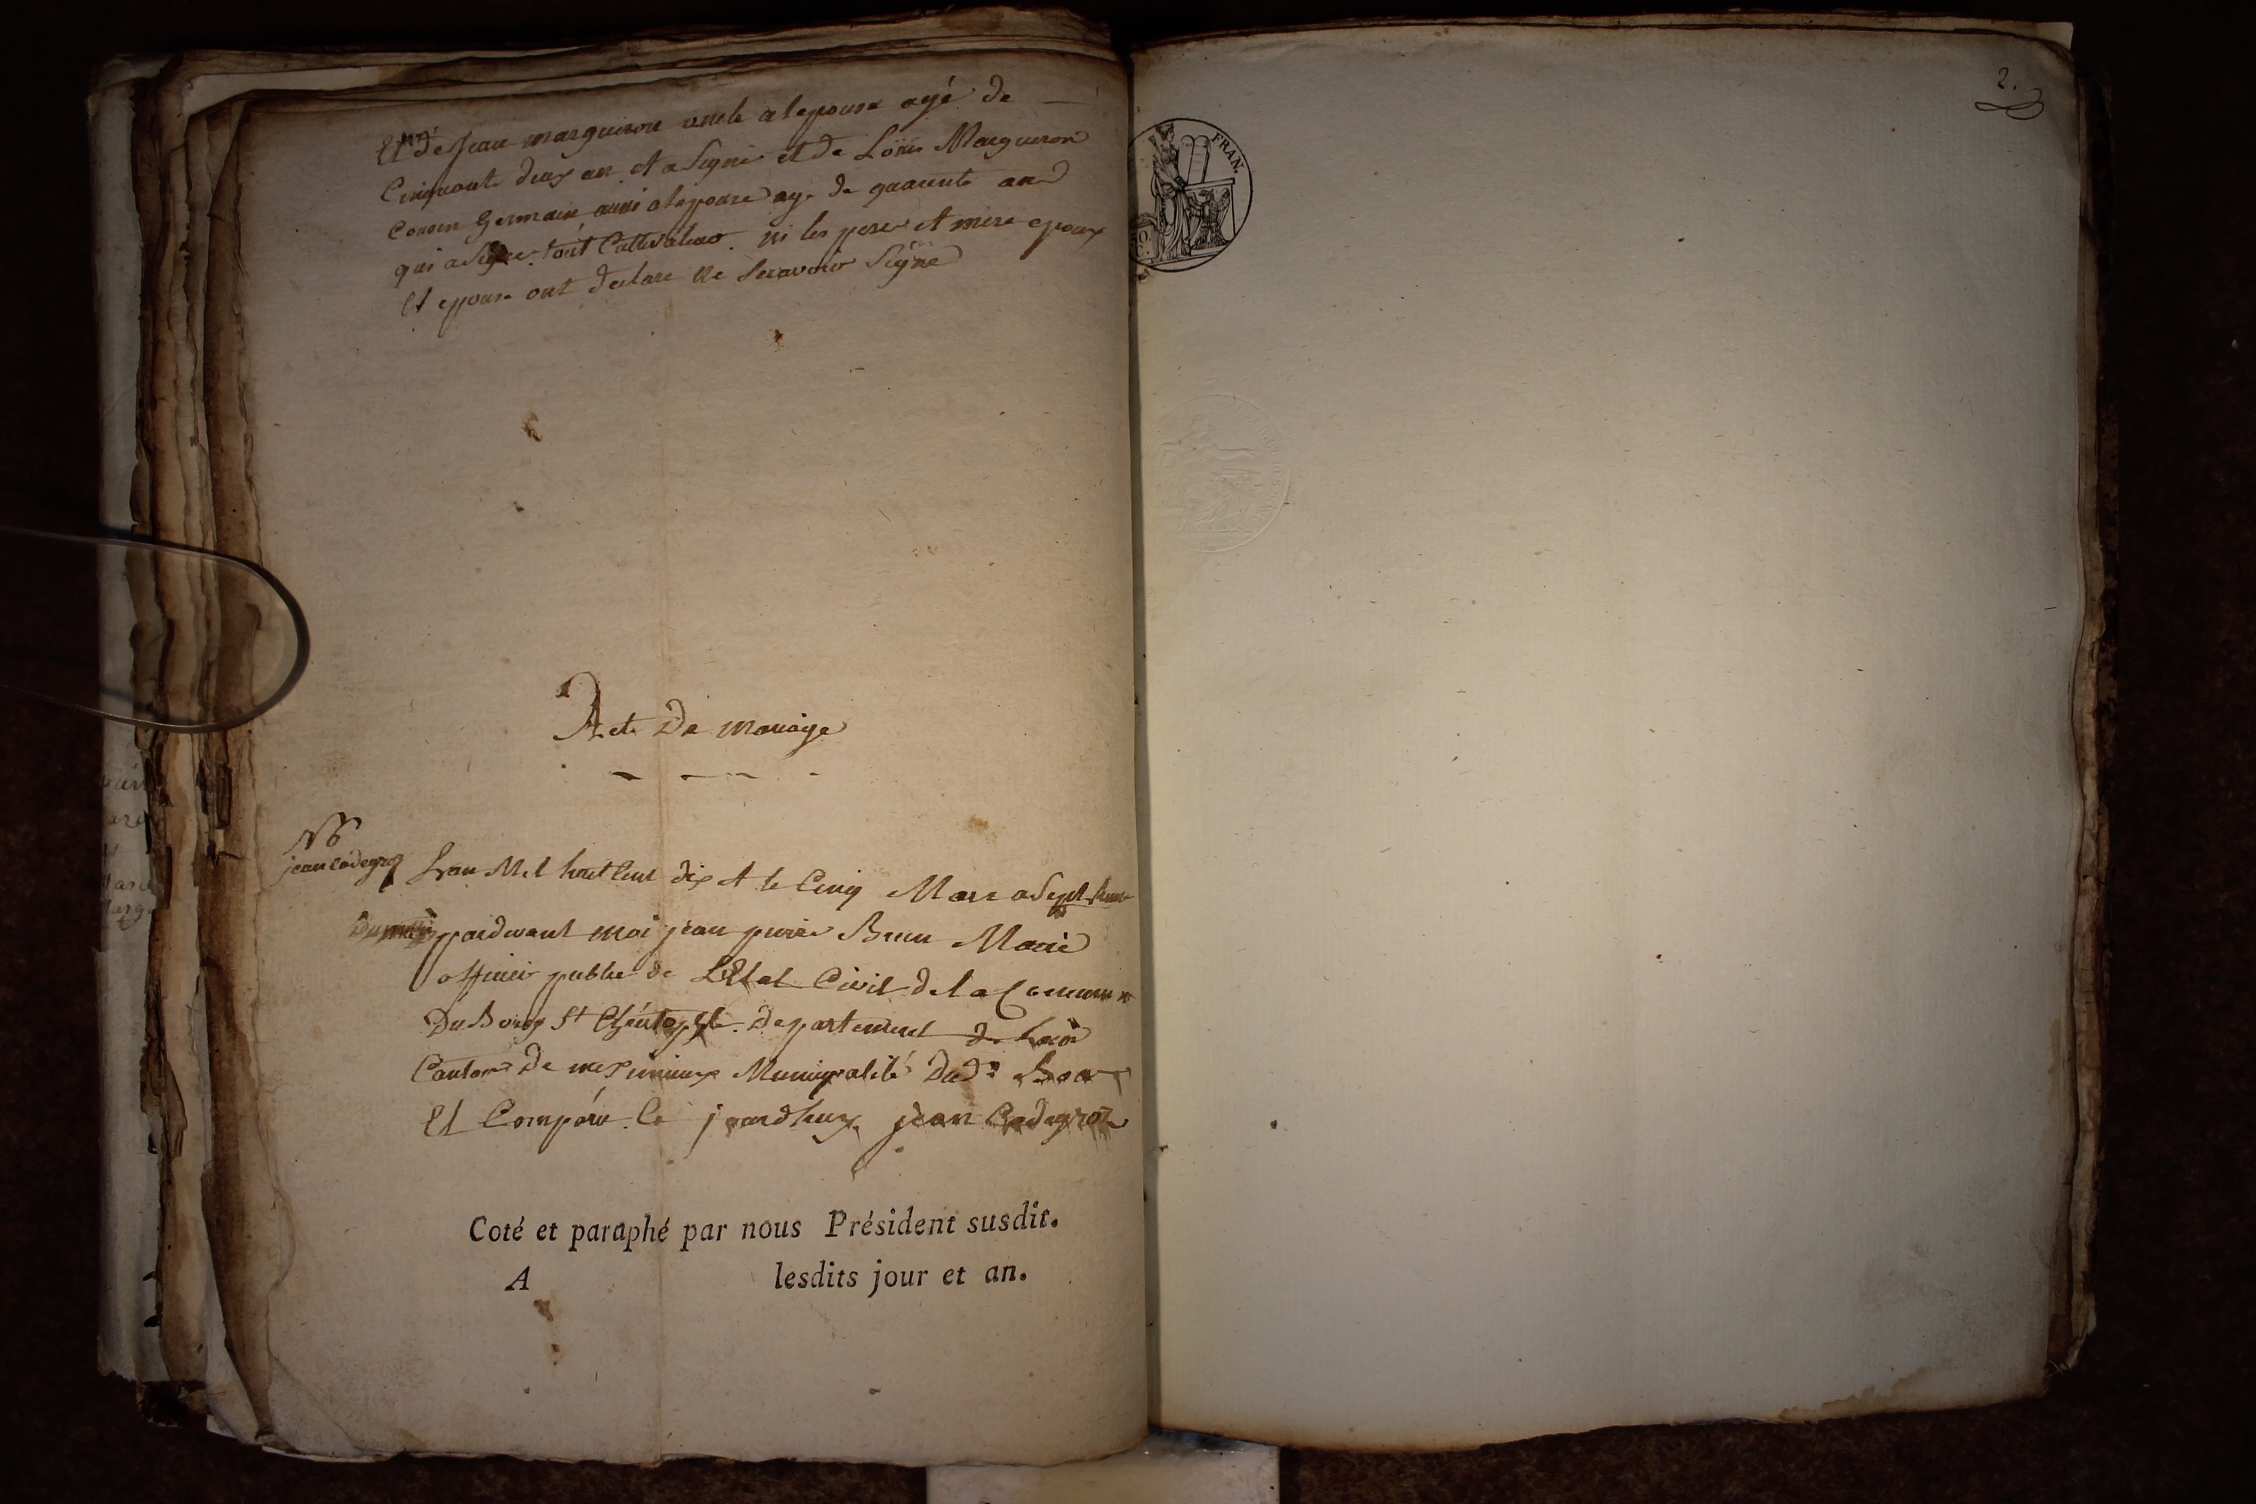 Et de Jean marguiron oncle a lepouse agé de
Cinquante deux an et a Signé et de Louis Marguiron
Cousin Germain aussi a lepouse age de quarente an
qui a Signe tout Cultivateur ni les pere et mere epoux
Et epouse ont declare ne Scavoir Signé
Acte De mariage
N 6
jean cadegros
Lan Mil huit Cent dix et le Cinq Mars a Sept heure
Du matin pardevant moi jean pierre Brun Maire
officier public de LEtat Civil de la Commune
Du Bourg St Chéristophe departement de Lain
Canton De meximieux Municipalité Dud.
Et Comparu Ce jourdhuy jean Cadegros
Coté et paraphé par nous Président susdit.
A lesdits jour et an.
2.
FRAN.